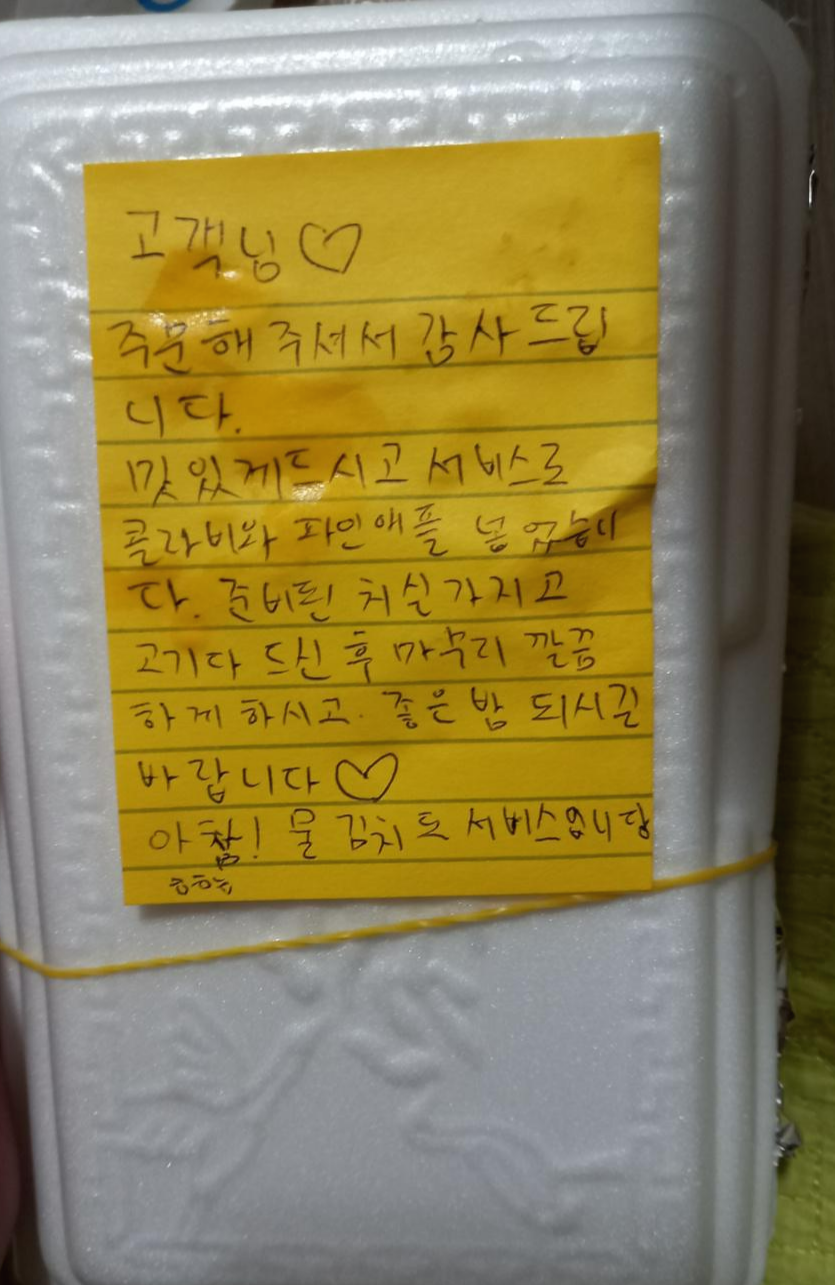 고객님♡
주문해 주셔서 감사드립
니다.
맛있게드시고 서비스로
콜라비와 파인애플 넣었습니
다. 준비된 치실가지고
고기다 드신 후 마무리 깔끔
하게 하시고. 좋은 밤 되시길
바랍니다♡
아참! 물김치도 서비스입니당
ㅎㅎㅎ